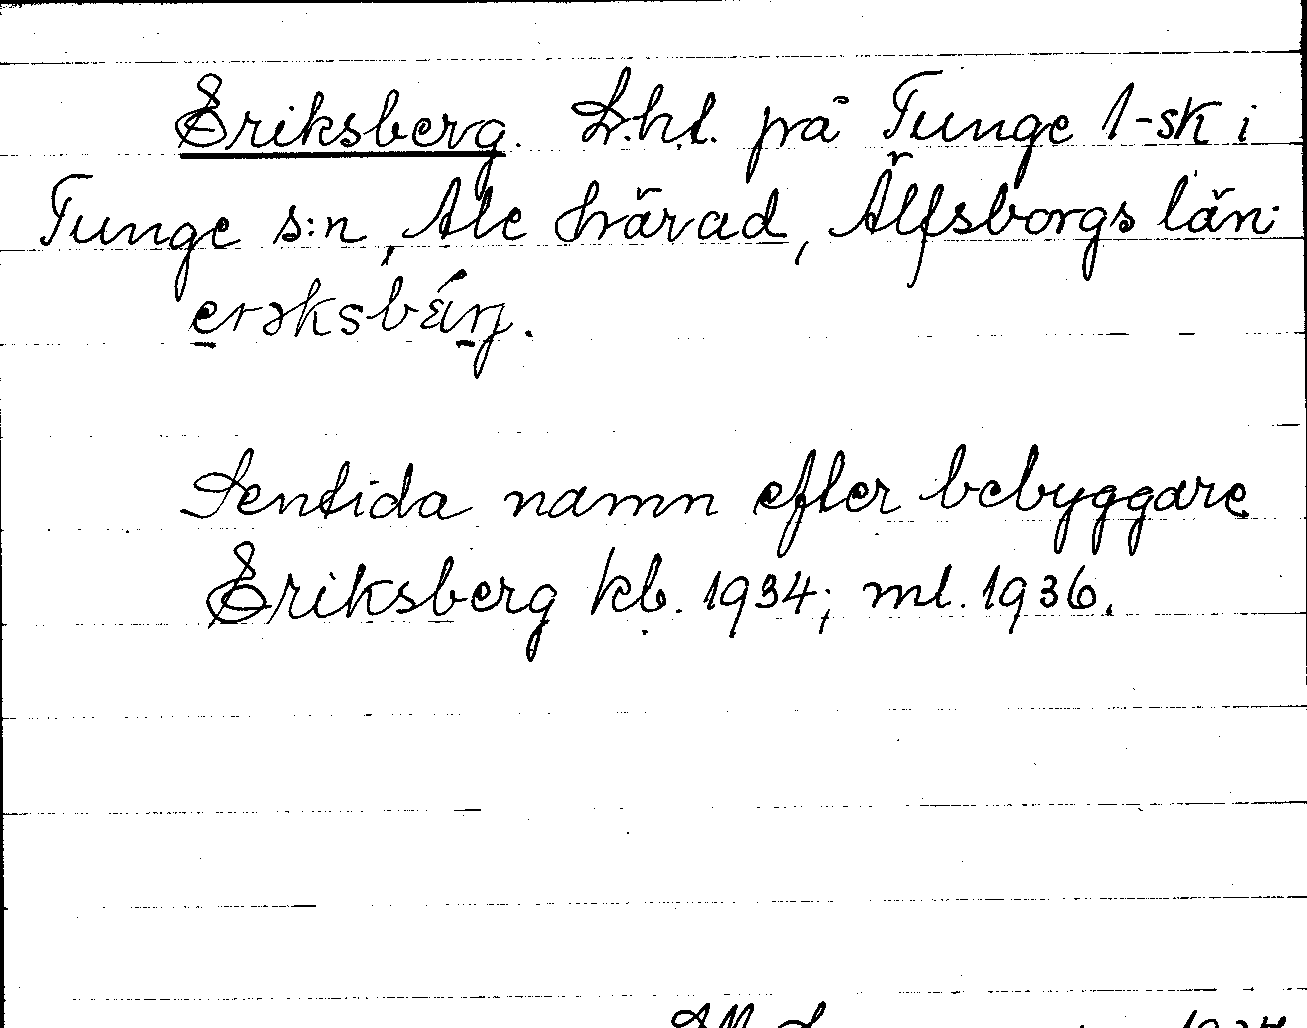 Eriksberg. L.h.t. på Tunge 1-sk i
Tunge s:n, Ale härad, Älfsborgs län
erəksbǽrj.
Sentida namn efter bebyggare
Eriksberg kb. 1934; ml. 1936.